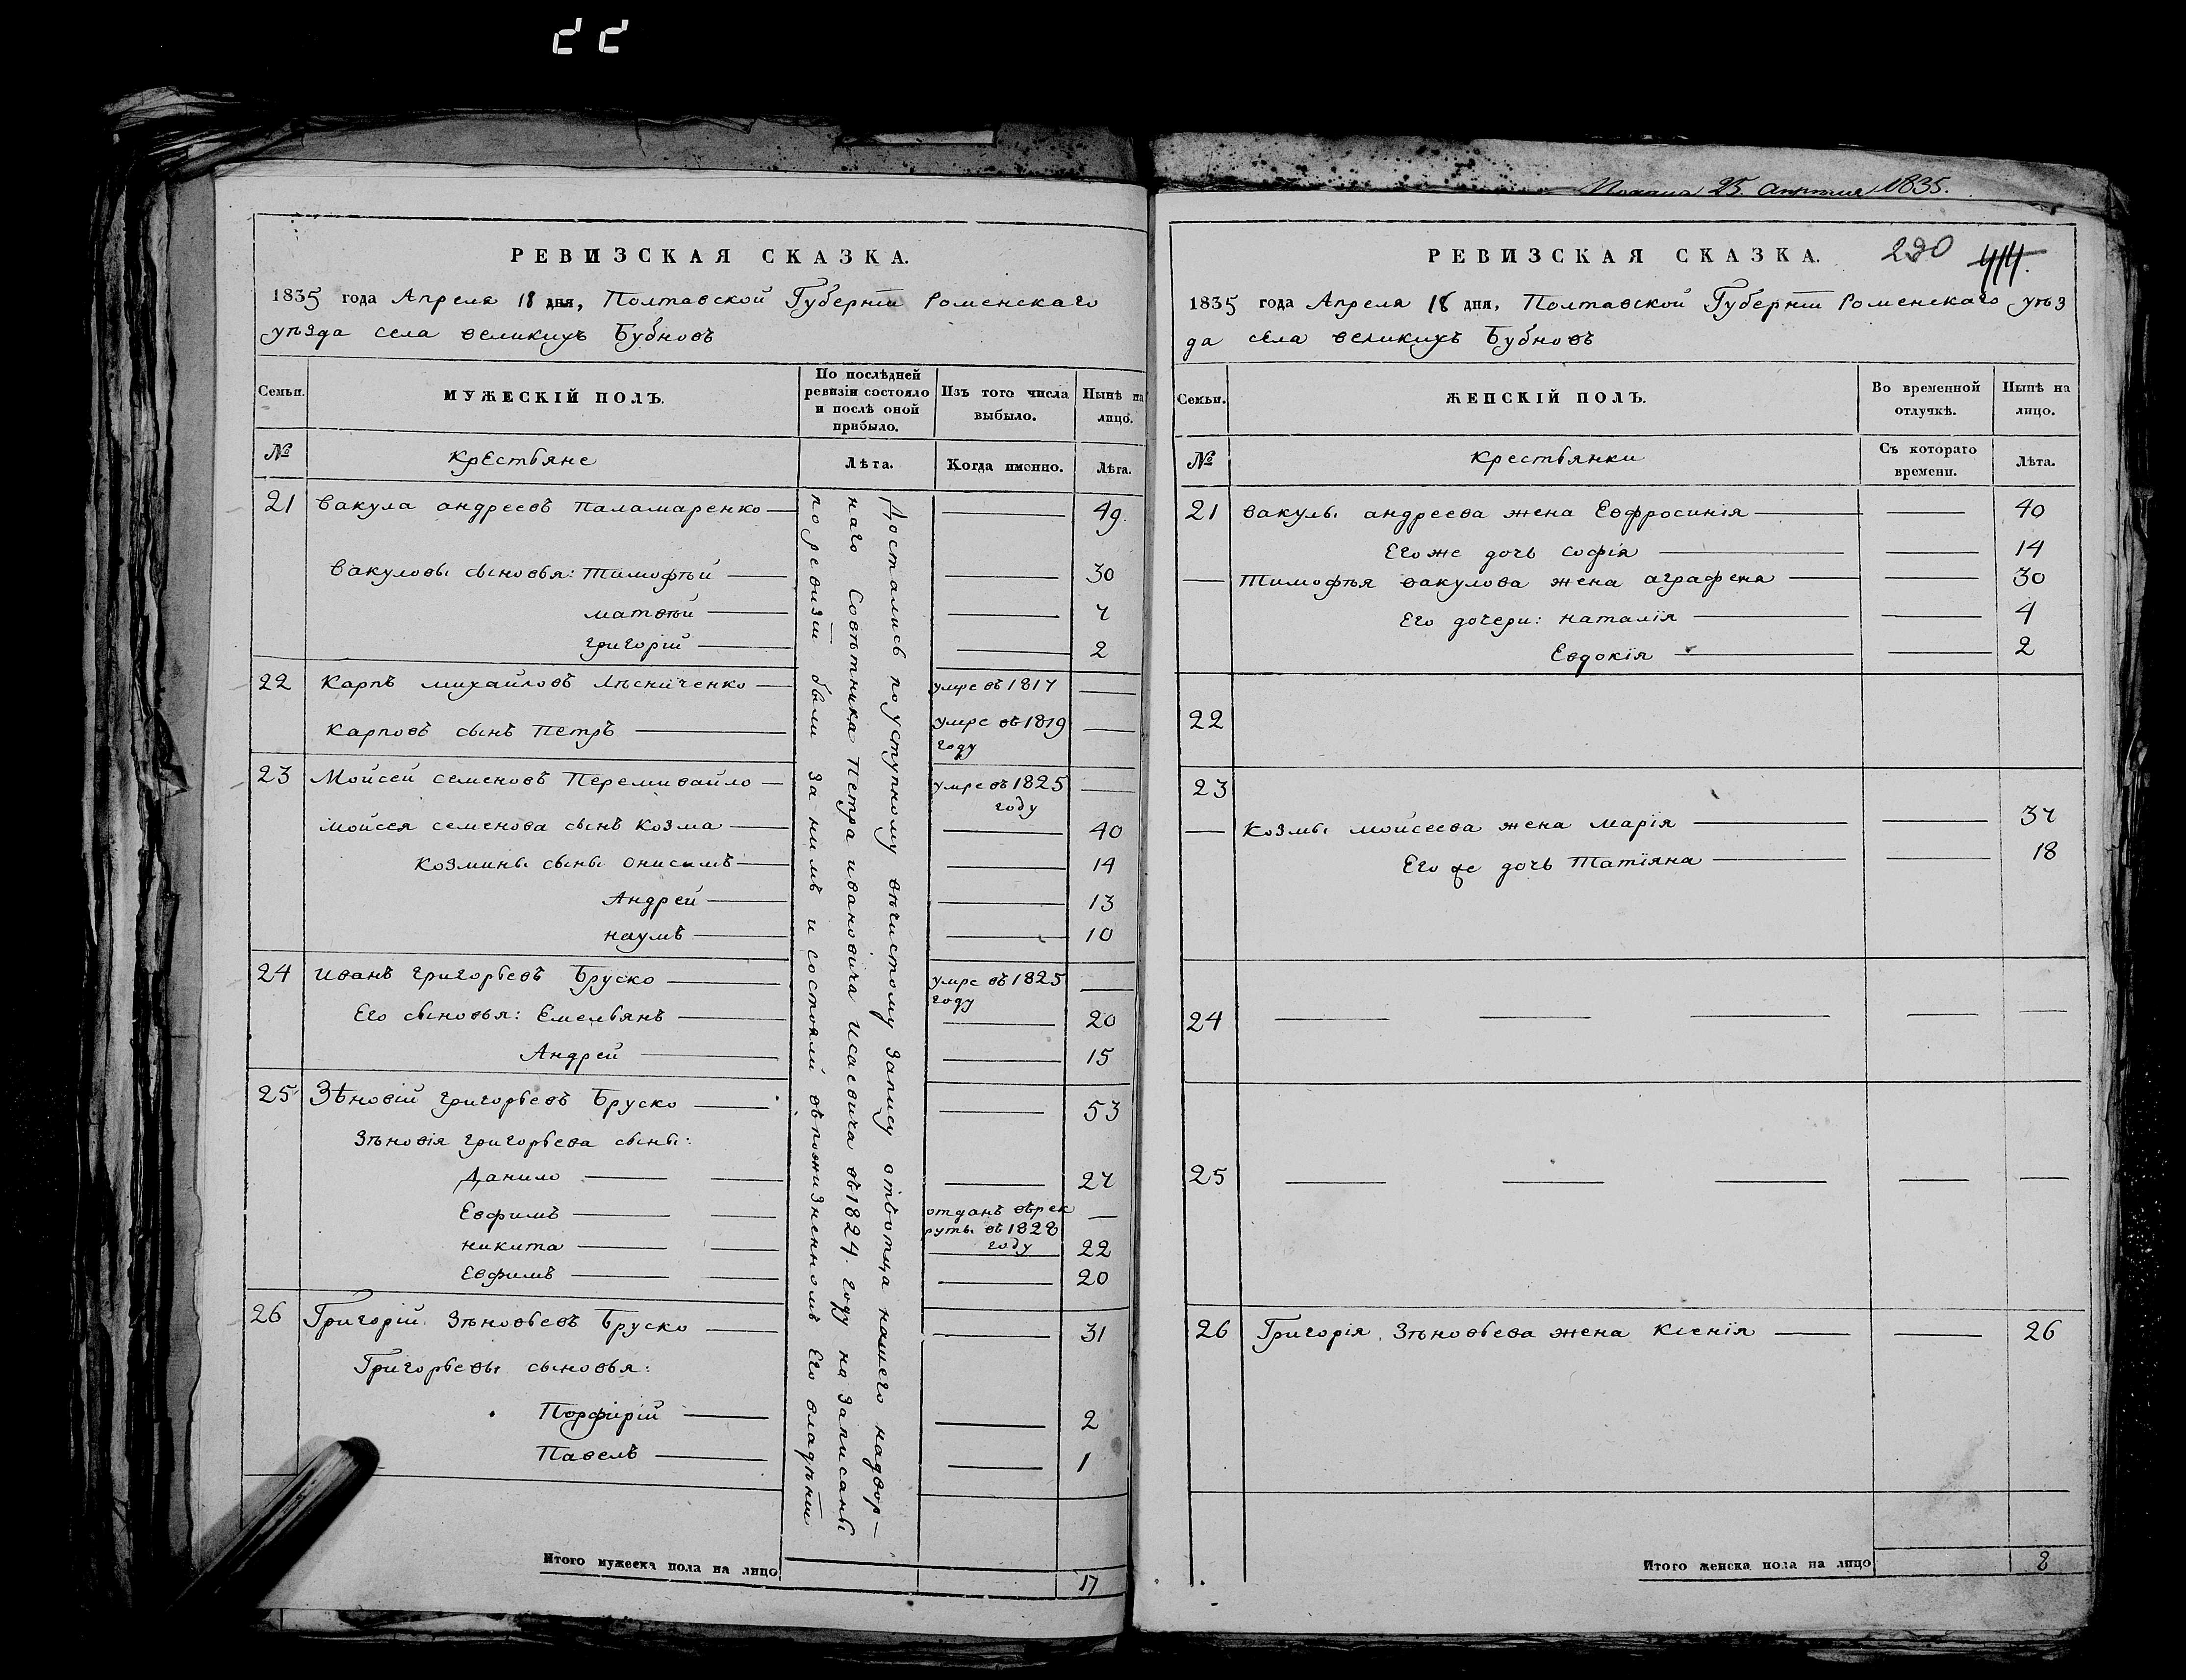 22
РЕВИЗСКАЯ СКАЗКА.
1835 года Апреля 18 дня, Полтавской Губерніи Роменскаго
уѣзда села великихъ Бубновъ
Семьи.
МУЖЕСКІЙ ПОЛЪ.
По послѣдней ревизіи состояло и послѣ оной прибыло.
Изъ того числа выбыло.
Нынѣ на лицо.
№
Крестьяне
Лѣта.
Когда именно.
Лѣта.
21 вакула андреевъ Паламаренко 49.
вакуловы сыновья: Тимофѣй 30
матвѣй 7
григорій 2
22 Карпъ михайловъ Лѣсниченко умре въ 1817
Карповъ сынъ Петръ умре въ 1819
году
23 Мойсей семеновъ Перемивайло умре въ 1825
году
мойсея семенова сынъ козма 40
козмины сыны онисимъ 14
Андрей 13
наумъ 10
24 иванъ григорьевъ Бруско умре въ 1825
году
Его сыновья: Емельянъ 20
Андрей 15
25 Зѣновій григорьевъ Бруско 53
Зѣновія григорьева сыны:
Данило 27
Евфимъ отданъ въ рек
руты въ 1828
году
никита 22
Евфимъ 20
26 Григорій Зѣновьевъ Бруско 31
Григорьевы сыновья:
Порфирій 2
Павелъ 1
Достались по уступному вѣчистому запису отъ отца нашего надвор—
наго Совѣтника Петра ивановича Исаевича въ 1824. году на Записаны
по ревизіи были за нимъ и состояли въ пожизненномъ Его владѣніи
Итого мужеска пола на лицо
17
25. апреля 1835.
РЕВИЗСКАЯ СКАЗКА.
290 414.
1835 года Апреля 18 дня, Полтавской Губерніи Роменскаго уѣз
да села великихъ Бубновъ
Семьи.
ЖЕНСКІЙ ПОЛЪ.
Во временной отлучкѣ.
Нынѣ на лицо.
№
Крестьянки
Съ котораго времени.
Лѣта.
21 вакулы андреева жена Евфросинія 40
Его же дочь софія 14
Тимофѣя вакулова жена аграфена 30
Его дочери: наталія 4
Евдокія 2
22
23
Козмы мойсеева жена марія 37
Его же дочь Татіяна 18
24
25
26 Григорія Зѣновьева жена Ксенія 26
Итого женска пола на лицо
8